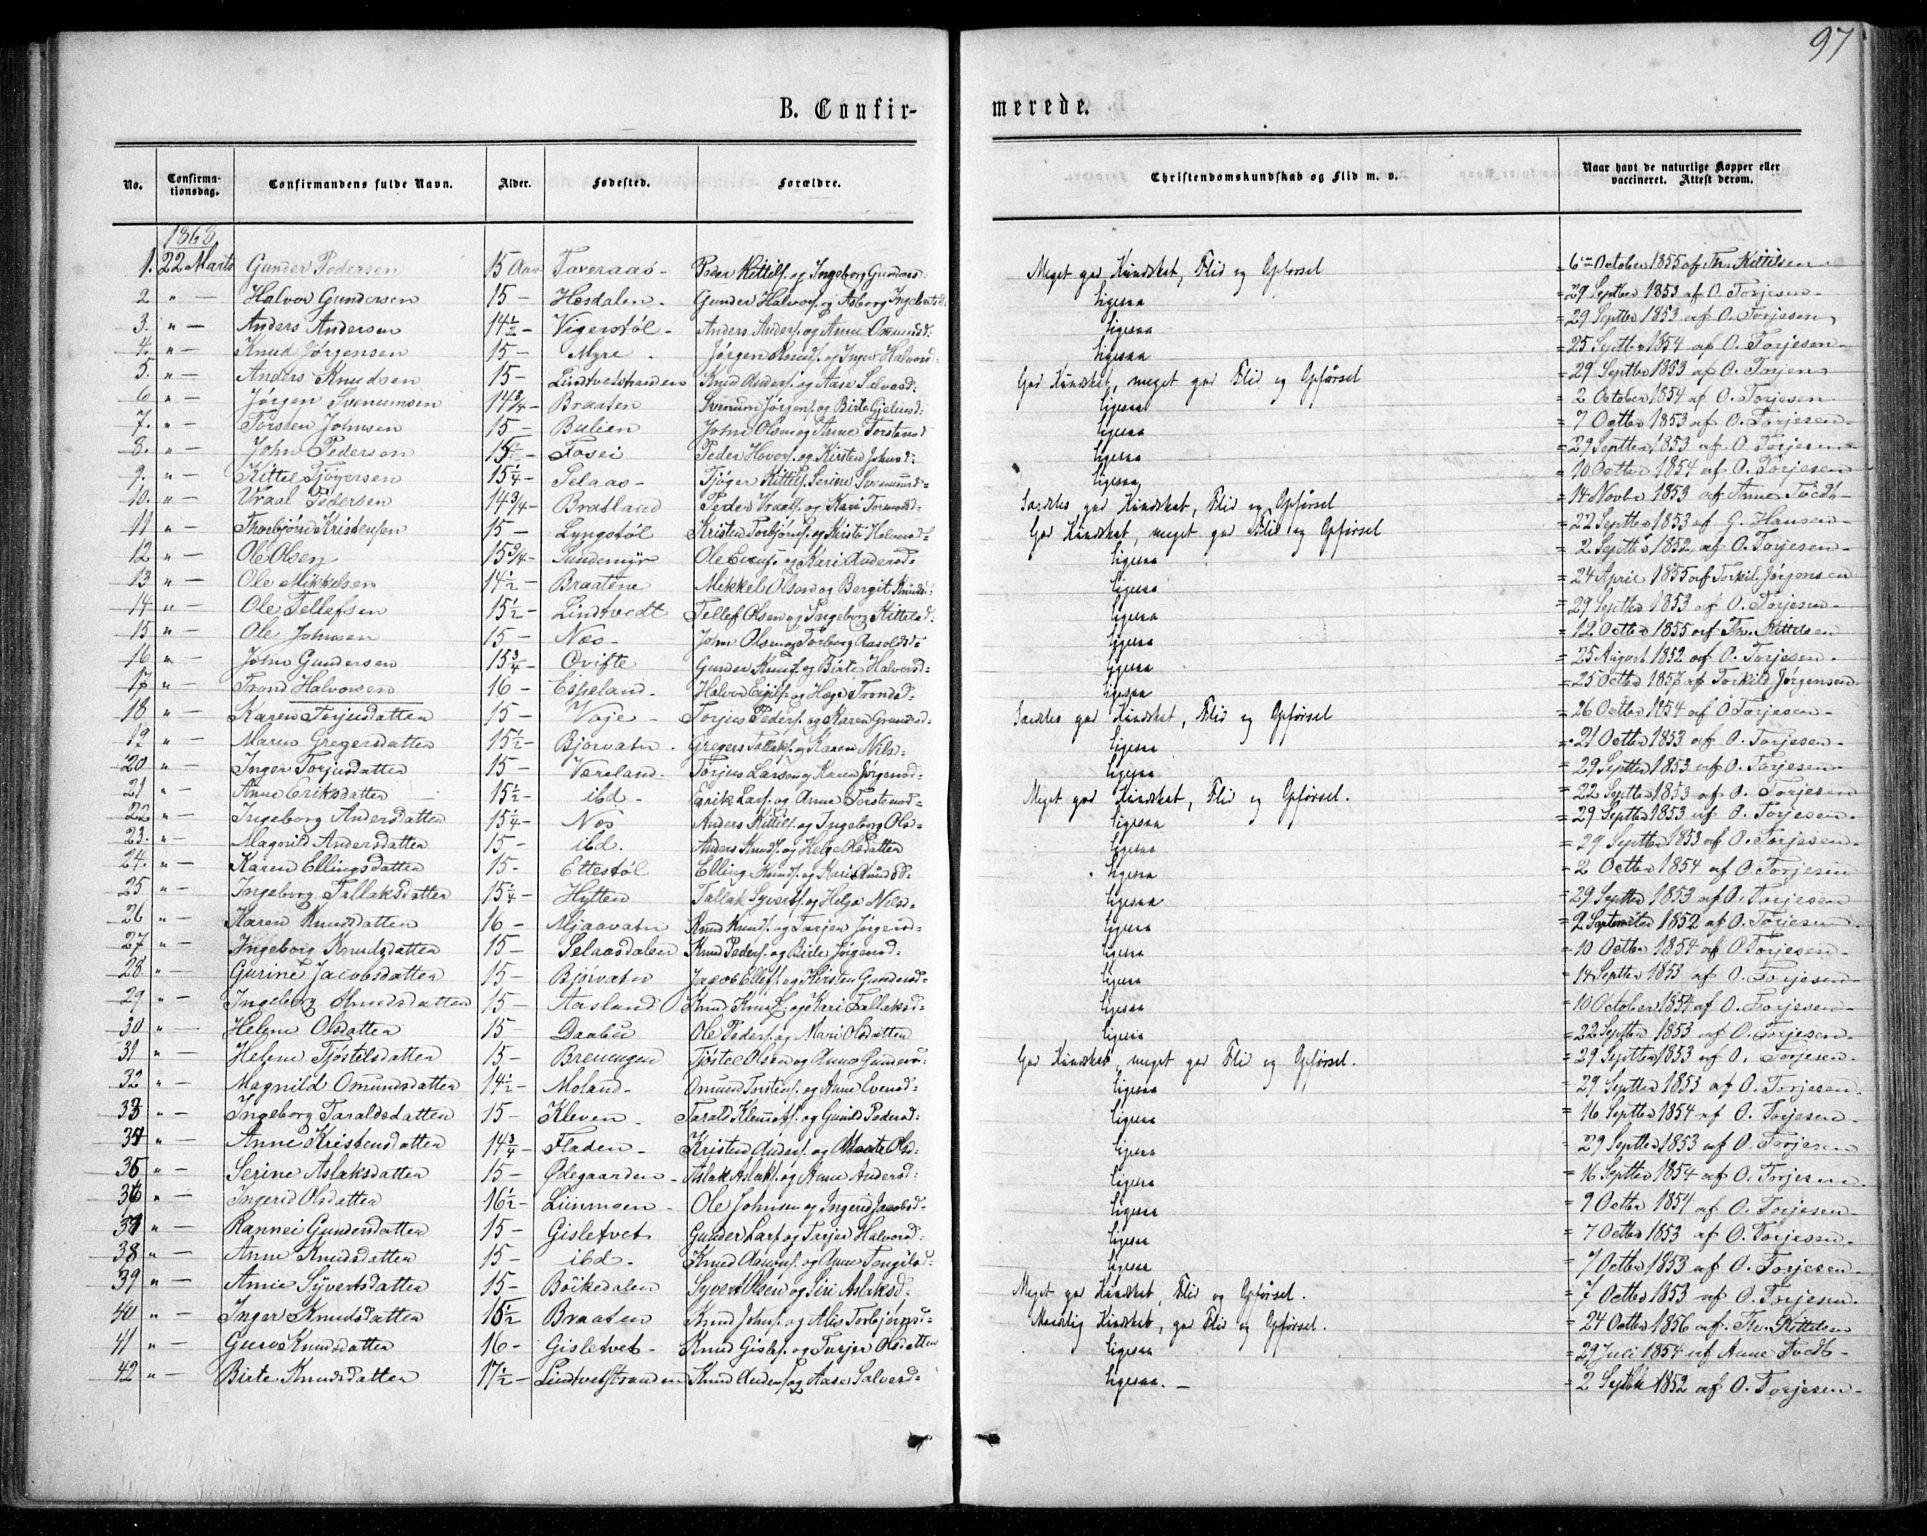 97
B. Confirmerede.
No. Confirmationsdag. Confirmandens fulde Navn. Alder. Fødested. Forældre. Christendomskundskab og Flid m. v. Naar havt de naturlige Kopper eller vaccineret. Attest derom.
1868
1. 22 Marts Gunder Pedersen 15 Aar Taveraas- Peder Kittils. og Ingeborg Gundersd: Meget god Kundskab, Flid og Opførsel = 6te October 1855 af Th. Kittilsen
2 " — Halvor Gundersen 15 - Hesdalen - Gunder Halvors. og Asborg Ligesaa = 29 Septber 1853 af O. Torjesen-
3. " — Anders Andersen 14½ - Vigerstøl - Anders Anders. og Anne Osmundsd. Ligesaa = 29 Septber 1853 af O. Torjesen,
4. " — Knud Jørgensen 15 - Myre - Jørgen Knuds. og Inger Halvorsd: Ligesaa = 25 Septber 1854 af O. Torjesen-
5. " — Anders Knudsen 15 - Lindtvedstranden Knud Anders. og Aase Salvesd: God Kundskab, meget god Flid og Opførsel = 29 Septber 1853 af O. Torjesen
6 " — Jørgen Svenumsen 14¾ - Braaten Svenum Jørgens. og Birte Ligesaa = 2 October 1854 af O. Torjesen
7. " — Torsten Johnsen 15 - Bulien John Olsen og Anne Torstensd Ligesaa = 7 Octber 1853 af O. Torjesen
8. " — John Pedersen Fosei Peder og Kirsten Johnsd: Ligesaa = 29 Septber 1853 af O. Torjesen
9. " — Kittel Tjøgersen 15¼ - Selaas - Tjøger Kittils. Serine Ligesaa = 10 Octber 1854 af O. Torjesen
10. " — Vraal Pedersen 14¾ - Bratland Peder Vraals. og Kari Tormodsd: Særdeles god Kundskab, Flid og Opførsel = 14 Novbr 1853 af Anne Tvedt-
11 " — Thorbjørn Kristensen 15 - Lyngstøl Kristen Torbjørns. og Kirsti Halvorsd: God Kundskab, meget god Flid og Opførsel = 22 Septber 1853 af G. Hansen-
12 " — Ole Olsen 15¾ - Sundemyr Ole og Kari Andersd: Ligesaa = 2 Septbr 1852 af O. Torjesen
13 " — Ole Mikkelsen 14½ - Braatene Mikkel Olsen og Bergit Knudsd: Ligesaa = 24 April 1855 af Torkil Jørgensen
14 " — Ole Tellefsen 15½ - Lindtvedt Tellef Olsen og Ingeborg Kittelsd. Ligesaa = 29 Septber 1853 af O. Torjesen-
15 " — Ole Johnsen 15 - Nes - John Olsen og Torborg Aasoldsd: Ligesaa = 12 Octber 1855 af Th. Kittelsen
16 " — John Gundersen 15¾ - Ovifte Gunder Knuds. og Birte Halvorsd: Ligesaa = 25 August 1852 af O. Torjesen.
17 " — Trond Halvorsen 16 - Espeland - Halvor Eigils. og Hæge Trondsd: Ligesaa = 25 Octber 1857 af Torkild Jørgensen
18 " — Karen Torjusdatter 15 - Vaje - Torjus Peders. og Karen Gundersd: Særdeles god Kundskab, Flid og Opførsel = 26 Octber 1854 af O Torjesen-
19 " — Maren Gregersdatter 15½ - Bjorvatn. Gregers Tallaks. og Karen Nilsd: Ligesaa = 21 Octber 1853 af O. Torjesen-
20 " — Inger Torjusdatter 15 - Væreland. Torjus Larsen og Karen Jørgensd: Ligesaa = 29 Septber 1853 af O. Torjesen-
21 " — Anne Eriksdatter 15½ - ibd - Erik Lars. og Anne Torstensd: Meget god Kundskab, Flid og Opførsel. = 22 Septber 1853 af O. Torjesen
22 " — Ingeborg Andersdatter 15¼ - Nes Anders Kittils. og Ingeborg Olsd: Ligesaa = 29 Septber 1853 af O. Torjesen-
23. " — Magnild Andersdatter 15 - ibd. Anders Knuds. og Helge Olsdatter Ligesaa = 29 Septber 1853 af O. Torjesen-
24. " — Karen Ellingsdatter 15 - Ettestøl Elling Knuds. og Kari Knudsd: Ligesaa = 2 Octber 1854 af O. Torjesen
25 " — Ingeborg Tallaksdatter 15¼ - Hytten Tallak Syverts. og Helga Nilsd: Ligesaa = 29 Septber 1853 af O. Torjesen
26 " — Karen Knudsdatter 16 - Mjaavatn Knud Knuds. og Torjer Jørgensd: Ligesaa = 2 September 1852 af O. Torjesen
27 " — Ingeborg Knudsdatter 15 - Selaasdalen Knud Peders. og Birte Jørgensd: Ligesaa = 10 Octber 1854 af O. Torjesen-
28 " — Gurine Jacobsdatter 15 - Bjorvatn Jacob Ellefs. og Kirsten Gundersd: Ligesaa = 14 Septber 1853 af O. Torjesen-
29 " — Ingeborg Knudsdatter 15 - Aasland Knud Knuds. og Kari Tallaksd: Ligesaa = 10 October 1854 af O. Torjesen-
30 " — Helene Olsdatter 15 - Daalen Ole Peders. og Mari Olsdatter Ligesaa = 22 Septber 1853 af O. Torjesen-
31 " — Helene Tjøstelsdatter 15 - Breningen Tjøstel Olsen og Anne Gundersd: God Kundskab, meget god Flid og Opførsel. = 29 Septber 1853 af O. Torjesen
32 " — Magnild Omundsdatter 14½ - Moland - Omund Torstens. og Anne Evensd: Ligesaa = 29 Septber 1853 af O. Torjesen-
33 " — Ingeborg Taraldsdatter 15 - Kleven - Tarald Klemets. og Gunild Pedersd: Ligesaa = 16 Septber 1854 af O. Torjesen-
34 " — Anne Kristensdatter 14¾ - Fladen - Kristen Anders. og Marte Olsd: Ligesaa = 29 Septber 1853 af O. Torjesen
35 " — Serine Aslaksdatter 15 - Ødegaarden - Aslak Aslaks. og Anne Andersd: Ligesaa = 16 Septber 1854 af O. Torjesen
36 " — Ingerid Olsdatter 16½ - Liinmoen - Ole Johnsen og Ingerid Jacobsd: Ligesaa = 9 Octber 1854 af O. Torjesen-
37 " — Rannei Gundersdatter 15 - Gisletvet Gunder Lars. og Torjer Halvorsd: Ligesaa = 7 Octber 1853 af O. Torjesen-
38 " — Anne Knudsdatter 15 - ibd. - Knud og Anne Ligesaa = 7 Octber 1853 af O. Torjesen-
39 " — Anne Syvertsdatter 15 - Böikedalen Syvert Olsen og Siri Aslaksd: Meget god Kundskab, Flid og Opførsel. = 7 Octber 1853 af O. Torjesen.
40 " — Inger Knudsdatter 16½ Braaten - Knud Johns. og Alis Torbjørnsd: Maadelig Kundskab, god Flid og Opførsel. = 24 Octber 1856 af Th. Kittelsen
41 " — Guro Knudsdatter 16 - Gisletvet - Knud Gisles. og Torjer Olsdatter Ligesaa = 29 Juli 1854 af Anne Tvedt-
42 " — Birte Knudsdatter 17½ - Lindtvedstranden Knud Anders. og Aase Salvesd: Ligesaa. - = 2 Septbr 1852 af O. Torjesen-